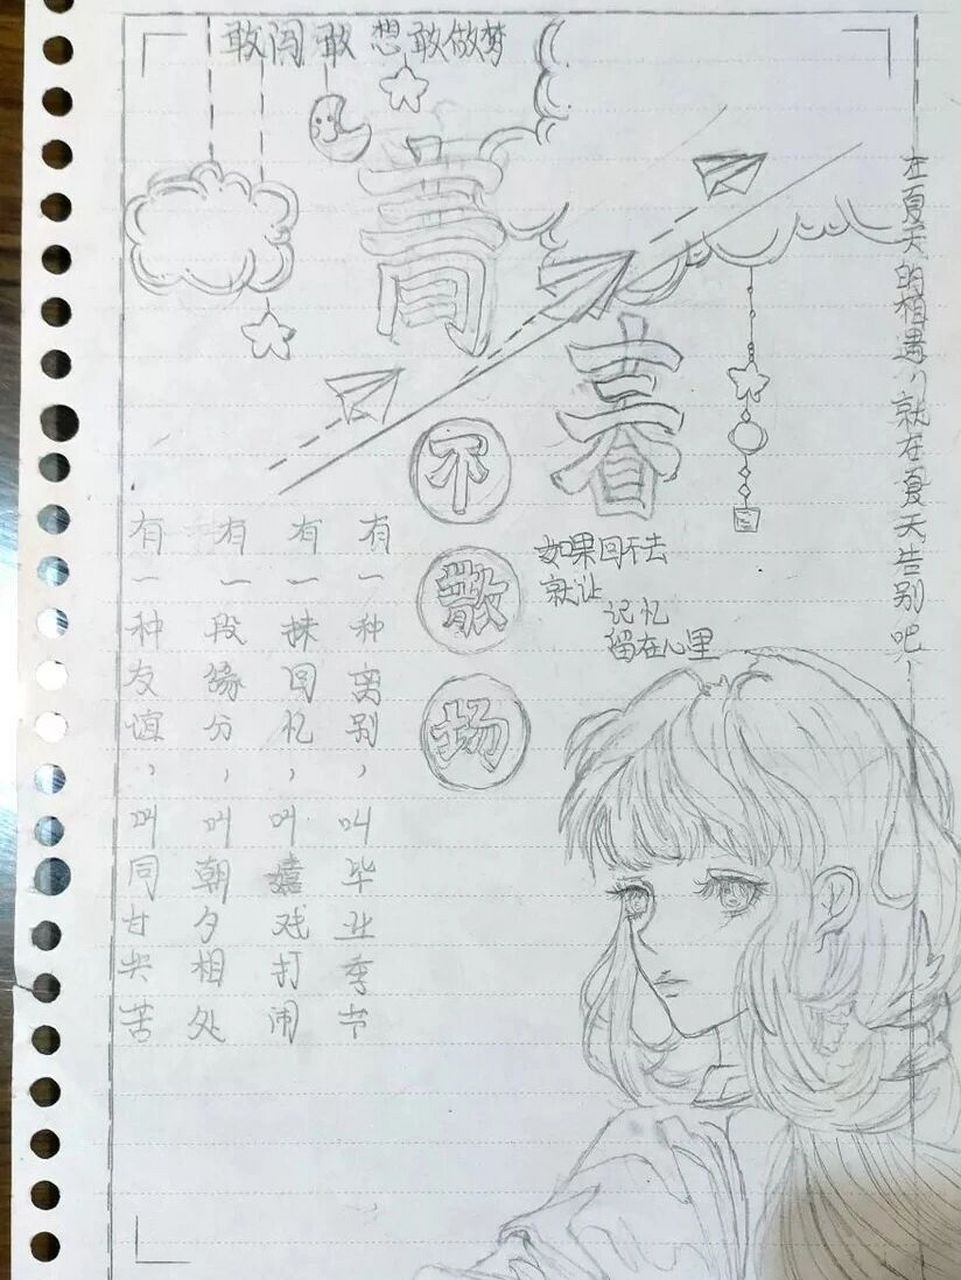 敢闯敢想敢做梦
青春
不散场
在夏天的相遇,就在夏天告别吧!
如果回不去
就让
记忆
留在心里
有一种友谊,叫同甘共苦
有一段缘分,叫朝夕相处
有一抹回忆,叫嬉戏打闹
有一种离别,叫毕业季节